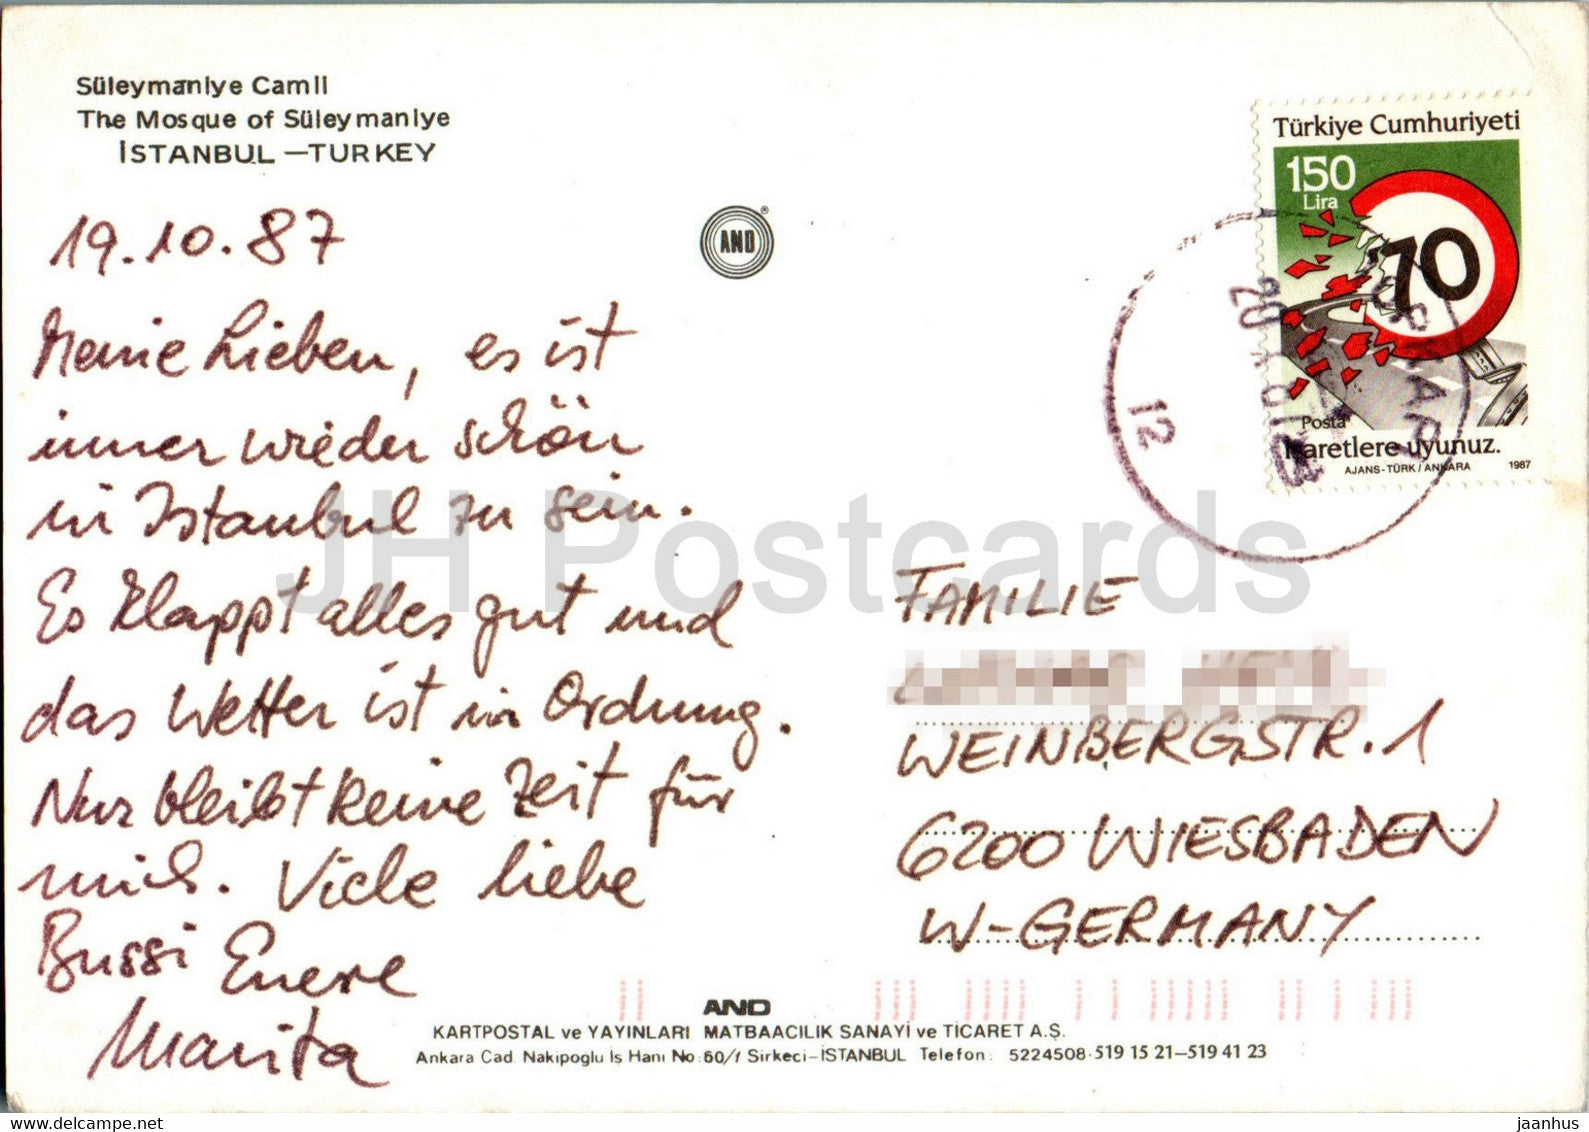 Süleymaniye Camii
The Mosque of Süleymaniye
İSTANBUL —TURKEY
19.10.87
Meine Lieben, es ist
immer wieder schön
in Istanbul zu sein.
Es klappt alles gut und
das Wetter ist in Ordnung.
Nur bleibt keine Zeit für
mich. Viele liebe
Bussi Euere
Marita
AND
Türkiye Cumhuriyeti
150
Lira
70
Posta
İşaretlere uyunuz.
AJANS-TÜRK / ANKARA 1987
20
12
FAMILIE
WEINBERGSTR. 1
6200 WIESBADEN
W-GERMANY
AND
KARTPOSTAL ve YAYINLARI MATBAACILIK SANAYİ ve TİCARET A.Ş.
Ankara Cad. Nakipoglu İş Hanı No: 60/1 Sirkeci-İSTANBUL Telefon: 5224508-519 15 21-519 41 23
JH Postcards
delcampe.net
jaanhus